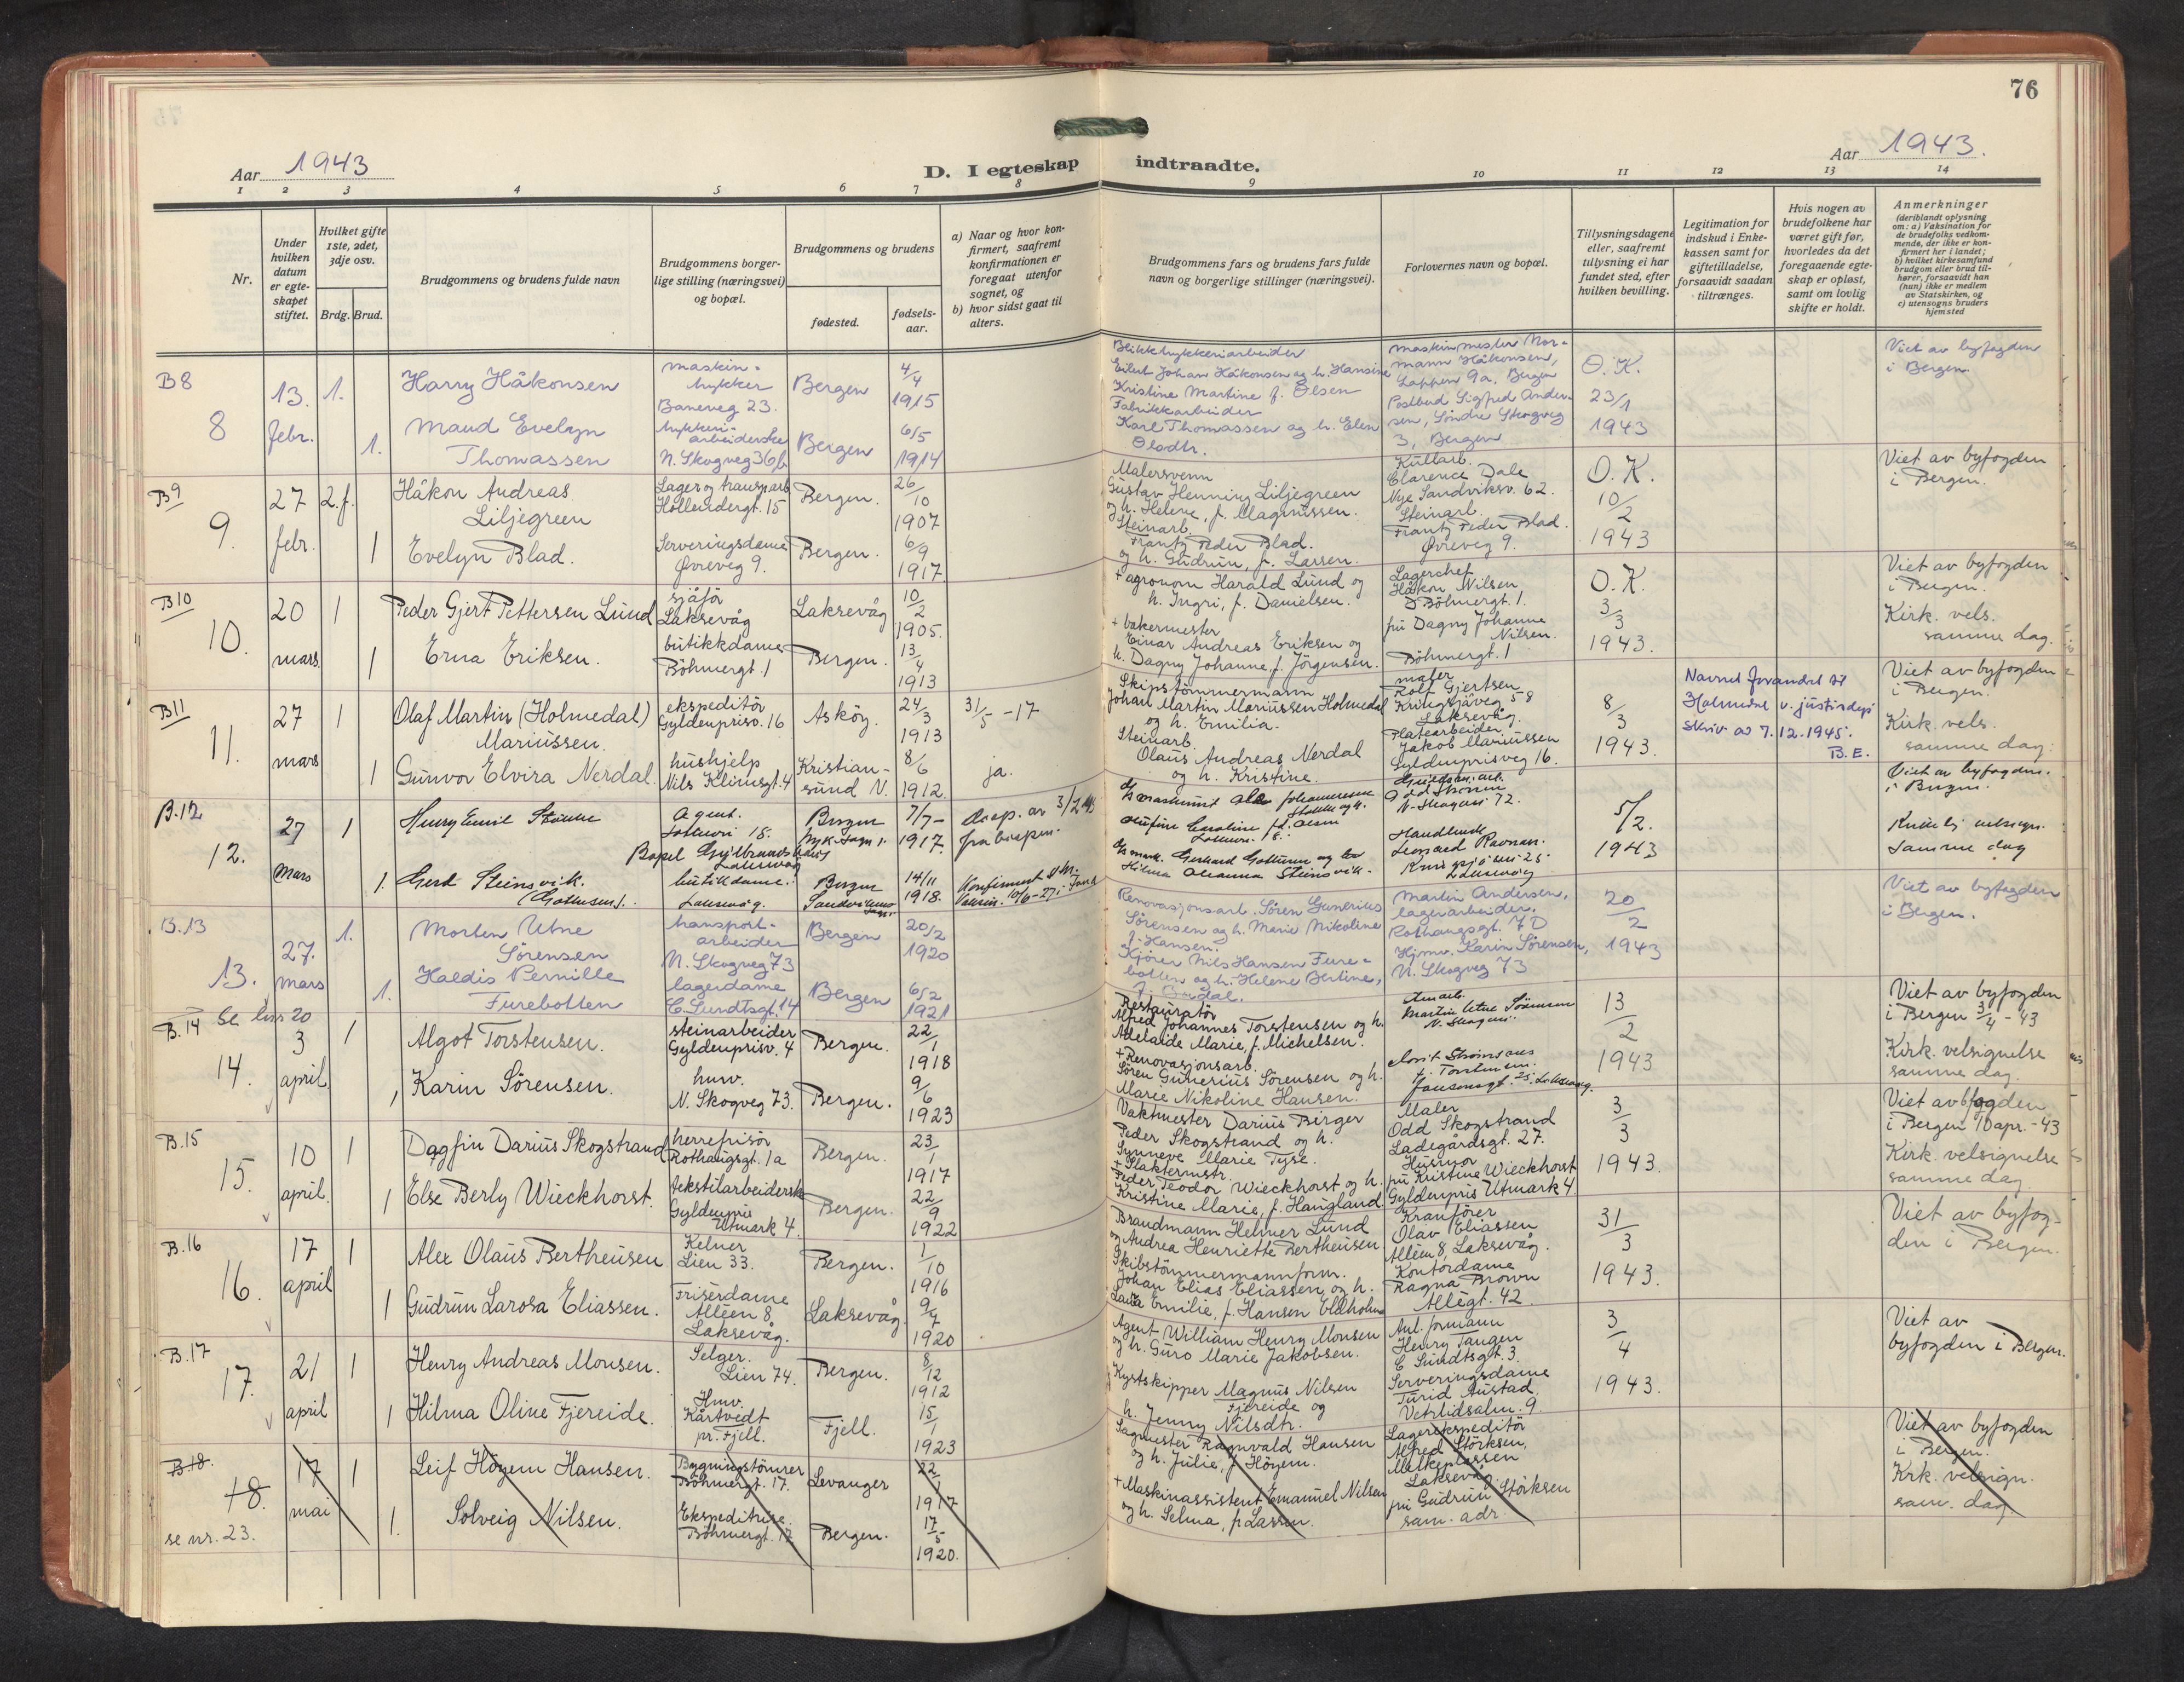 76
Aar 1943
D. I egteskap indtraadte.
Aar 1943.
1 2 3 4 5 6 7 8 9 10 11 12 13 14
Nr.
Under hvilken datum er egteskapet stiftet.
Hvilket gifte 1ste, 2det, 3dje osv.
Brdg. Brud.
Brudgommens og brudens fulde navn
Brudgommens borgerlige stilling (næringsvei) og bopæl.
Brudgommens og brudens
fødested.
fødselsaar.
a) Naar og hvor konfirmert, saafremt konfirmationen er foregaat utenfor sognet, og
b) hvor sidst gaat til alters.
Brudgommens fars og brudens fars fulde navn og borgerlige stillinger (næringsvei).
Forlovernes navn og bopæl.
Tillysningsdagene eller, saafremt tillysning ei har fundet sted, efter hvilken bevilling.
Legitimation for indskud i Enkekassen samt for giftetilladelse, forsaavidt saadan tiltrænges.
Hvis nogen av brudefolkene har været gift før, hvorledes da det foregaaende egteskap er opløst, samt om lovlig skifte er holdt.
Anmerkninger
(deriblandt oplysning om: a) Vaksination for de brudefolks vedkommende, der ikke er konfirmert her i landet; b) hvilket kirkesamfund brudgom eller brud tilhører, forsaavidt han (hun) ikke er medlem av Statskirken, og c) utensogns bruders hjemsted
B8
8
13. febr.
1.
Harry Håkonsen
maskintrykker
Baneveg 23.
Bergen
4/4 1915
1.
Maud Evelyn Thomassen
trykkeriarbeiderske
N. Skogveg 36b
Bergen
6/5 1914
Blikktrykkeriarbeider
Eilert Johan Håkonsen og h. Hansine
Kristine Martine f. Olsen
Fabrikkarbeider
Karl Thomassen og h. Elen
Olsdtr.
maskinmester Normann Håkonsen,
Lappen 9a, Bergen
Postbud Sigfred Andersen, Søndre Skogveg
3, Bergen
O.K.
23/1
1943
Viet av byfogden
i Bergen.
B9
9.
27 febr.
2.f.
Håkon Andreas
Liljegreen
Lager og transp.arb
Hollendergt. 15
Bergen.
26/10 1907
1
Evelyn Blad.
Serveringsdame
Øvreveg 9.
Bergen.
6/9 1917
Malersvenn
Gustav Henning Liljegreen
og h. Helene, f. Magnussen.
Steinarb.
Frantz Peder Blad.
og h. Gudrun, f. Larsen.
Kullarb.
Clarence Dale
Nye Sandviksv. 62.
Steinarb.
Frantz Peder Blad.
Øvreveg 9.
O.K.
10/2
1943
Viet av byfogden
i Bergen.
B10
10.
20 mars.
1
Peder Gjert Pettersen Lund
sjåfør
Laksevåg
Laksevåg
10/2 1905.
1
Erna Eriksen.
butikkdame
Böhmergt. 1
Bergen.
13/4 1913
+ agronom Harald Lund og
h. Ingri, f. Danielsen.
+ bakermester
Einar Andreas Eriksen og
h. Dagny Johanne, f. Jörgensen.
Lagerchef
Håkon Nilsen
Böhmergt. 1.
fru Dagny Johanne
Nilsen.
Böhmergt. 1
O.K.
3/3
1943.
Viet av byfogden
i Bergen.
Kirk. vels.
samme dag.
B11
11.
27 mars
1
Olaf Martin (Holmedal)
Mariussen.
ekspeditör
Gyldenprisv. 16
Asköy.
24/3 1913
31/5 -17
1
Gunvor Elvira Nerdal.
hushjelp
Nils Klimsgt. 4
Kristiansund N.
8/6 1912.
ja.
Skipstömmermann
Johan Martin Mariussen Holmedal
og h. Emilia.
Steinarb.
Olaus Andreas Nerdal
og h. Kristine.
maler
Rolf Gjertsen
Kringsjåveg 58
Laksevåg.
Platearbeider
Jakob Mariussen
Gyldenprisveg 16.
8/3
1943.
Navnet forandret til
Holmedal v. justisdeps
skriv av 7.12.1945.
B.E.
Viet av byfogden
i Bergen.
Kirk. vels.
samme dag.
B.12
12.
27 Mars
1
Henry Emil
Agent.
18.
Bergen
7/7 - 1917.
disp. av 3/2 1943
fra bispen.
Bopel
Laksevåg
1.
Gerd Steinsvik.
(Gotteson).
butikdame.
Laksevåg.
Bergen
14/11 1918.
Konfirmert
10/6-27
Gerhard
og
Hilma Oleanna Steinsvik.
N. Skogvei 72.
Handlende
Leonard
Laksevåg
5/2.
1943
Viet av byfogden.
i Bergen.
Kirkelig velsign.
samme dag
B.13
13.
27. mars
1.
Morten Utne
Sørensen
transportarbeider
N. Skogveg 73
Bergen
20/2 1920
1.
Haldis Pernille
Furebotten
lagerdame
C. Sundtsgt. 14
Bergen
6/2 1921
Renovasjonsarb. Søren Gunerius
Sørensen og h. Marie Nikoline
f. Hansen.
Kjører Nils Hansen Furebotten og h. Helene Bertine,
Martin Andersen,
lagerarbeider.
Rothaugsgt. 7D
Hjmv. Karin Sørensen,
N. Skogveg 73
20/2
1943
Viet av byfogden
i Bergen.
Se lnr 20
B.14
14.
3 april
1
Algot Torstensen.
steinarbeider
Gyldenprisv. 4
Bergen.
22/1 1918
1
Karin Sörensen.
husv.
N. Skogveg 73.
Bergen.
9/6 1923
Restauratör
Alfred Johannes Torstensen og h.
Adelaide Marie, f. Michelsen.
+ Renovasjonsarb.
Sören Gunerius Sörensen og h.
Marie Nikoline Hansen.
Morten Utne Sörensen
N. Skogvei.
13/2
1943
Viet av byfogden
i Bergen 3/4 - 43
Kirk. velsignelse
samme dag.
B.15
15.
10 april.
1
Dagfin Darius Skogstrand
herrefrisör
Rothaugsgt. 1a
Bergen.
23/1 1917
1
Else Berly Wieckhorst.
tekstilarbeiderske
Gyldenpris
Utmark 4.
Bergen.
22/9 1922
Vaktmester Darius Birger
Peder Skogstrand og h.
Synneve Marie Tyse.
+ Slaktermstr.
Peder Teodor Wieckhorst og h.
Kristine Marie, f. Haugland
Maler
Odd Skogstrand
Ladegårdsgt. 27.
Husmor
fru Kristine Wieckhorst
Gyldenpris Utmark 4
3/3
1943.
Viet av byfogden
i Bergen 10 apr. - 43
Kirk. velsignelse
samme dag.
B.16
16.
17 april
1
Alex Olaus Bertheusen
Kelner
Lien 33.
Bergen.
1/10 1916
1
Gudrun Larosa Eliassen.
Friserdame
Alléen 8
Laksevåg.
Laksevåg.
1920
Brandmann Helmer Lund
og Andrea Henriette Bertheusen
Skibstömmermannform.
Johan Elias Eliassen og h.
Laura Emilie, f. Hansen Eldholm
Kranförer
Olav Eliassen
Alléen 8, Laksevåg.
Kontordame
Ragna Brown
Allégt. 42.
31/3
1943.
Viet av byfogden i Bergen.
B.17
17.
21 april
1
Henry Andreas Monsen.
Selger.
Lien 74.
Bergen.
8/12 1912
1
Hilma Oline Fjereide.
Husv.
Kårtvedt
pr. Fjell.
Fjell.
15/1 1923
Agent William Henry Monsen
og h. Guro Marie Jakobsen.
Kystskipper Magnus Nilsen
Fjereide og
h. Jenny Nilsdtr.
Anl. formann
Henry Tangen
C Sundtsgt. 3.
Serveringsdame
Turid Austad.
Vetrlidsalm. 9.
3/4
1943.
Viet av
byfogden i Bergen.
B.18.
18.
17 mai
1
Leif Höyem Hansen.
Bygningstömrer
Böhmergt. 17.
Levanger
22/1 1917
1.
Solveig Nilsen.
Ekspeditrise.
Böhmergt. 17
Bergen.
17/5 1920.
se nr. 23.
Sagmester Ragnvald Hansen
og h. Julie, f. Höyem.
+ Maskinassistent Emanuel Nilsen
og h. Selma, f. Larsen.
Lagerekspeditör
Alfred Störksen,
Melkeplassen
Laksevåg.
fru Gudrun Störksen
sam. adr.
Viet av byfogden
i Bergen.
Krk. velsign.
sam. dag